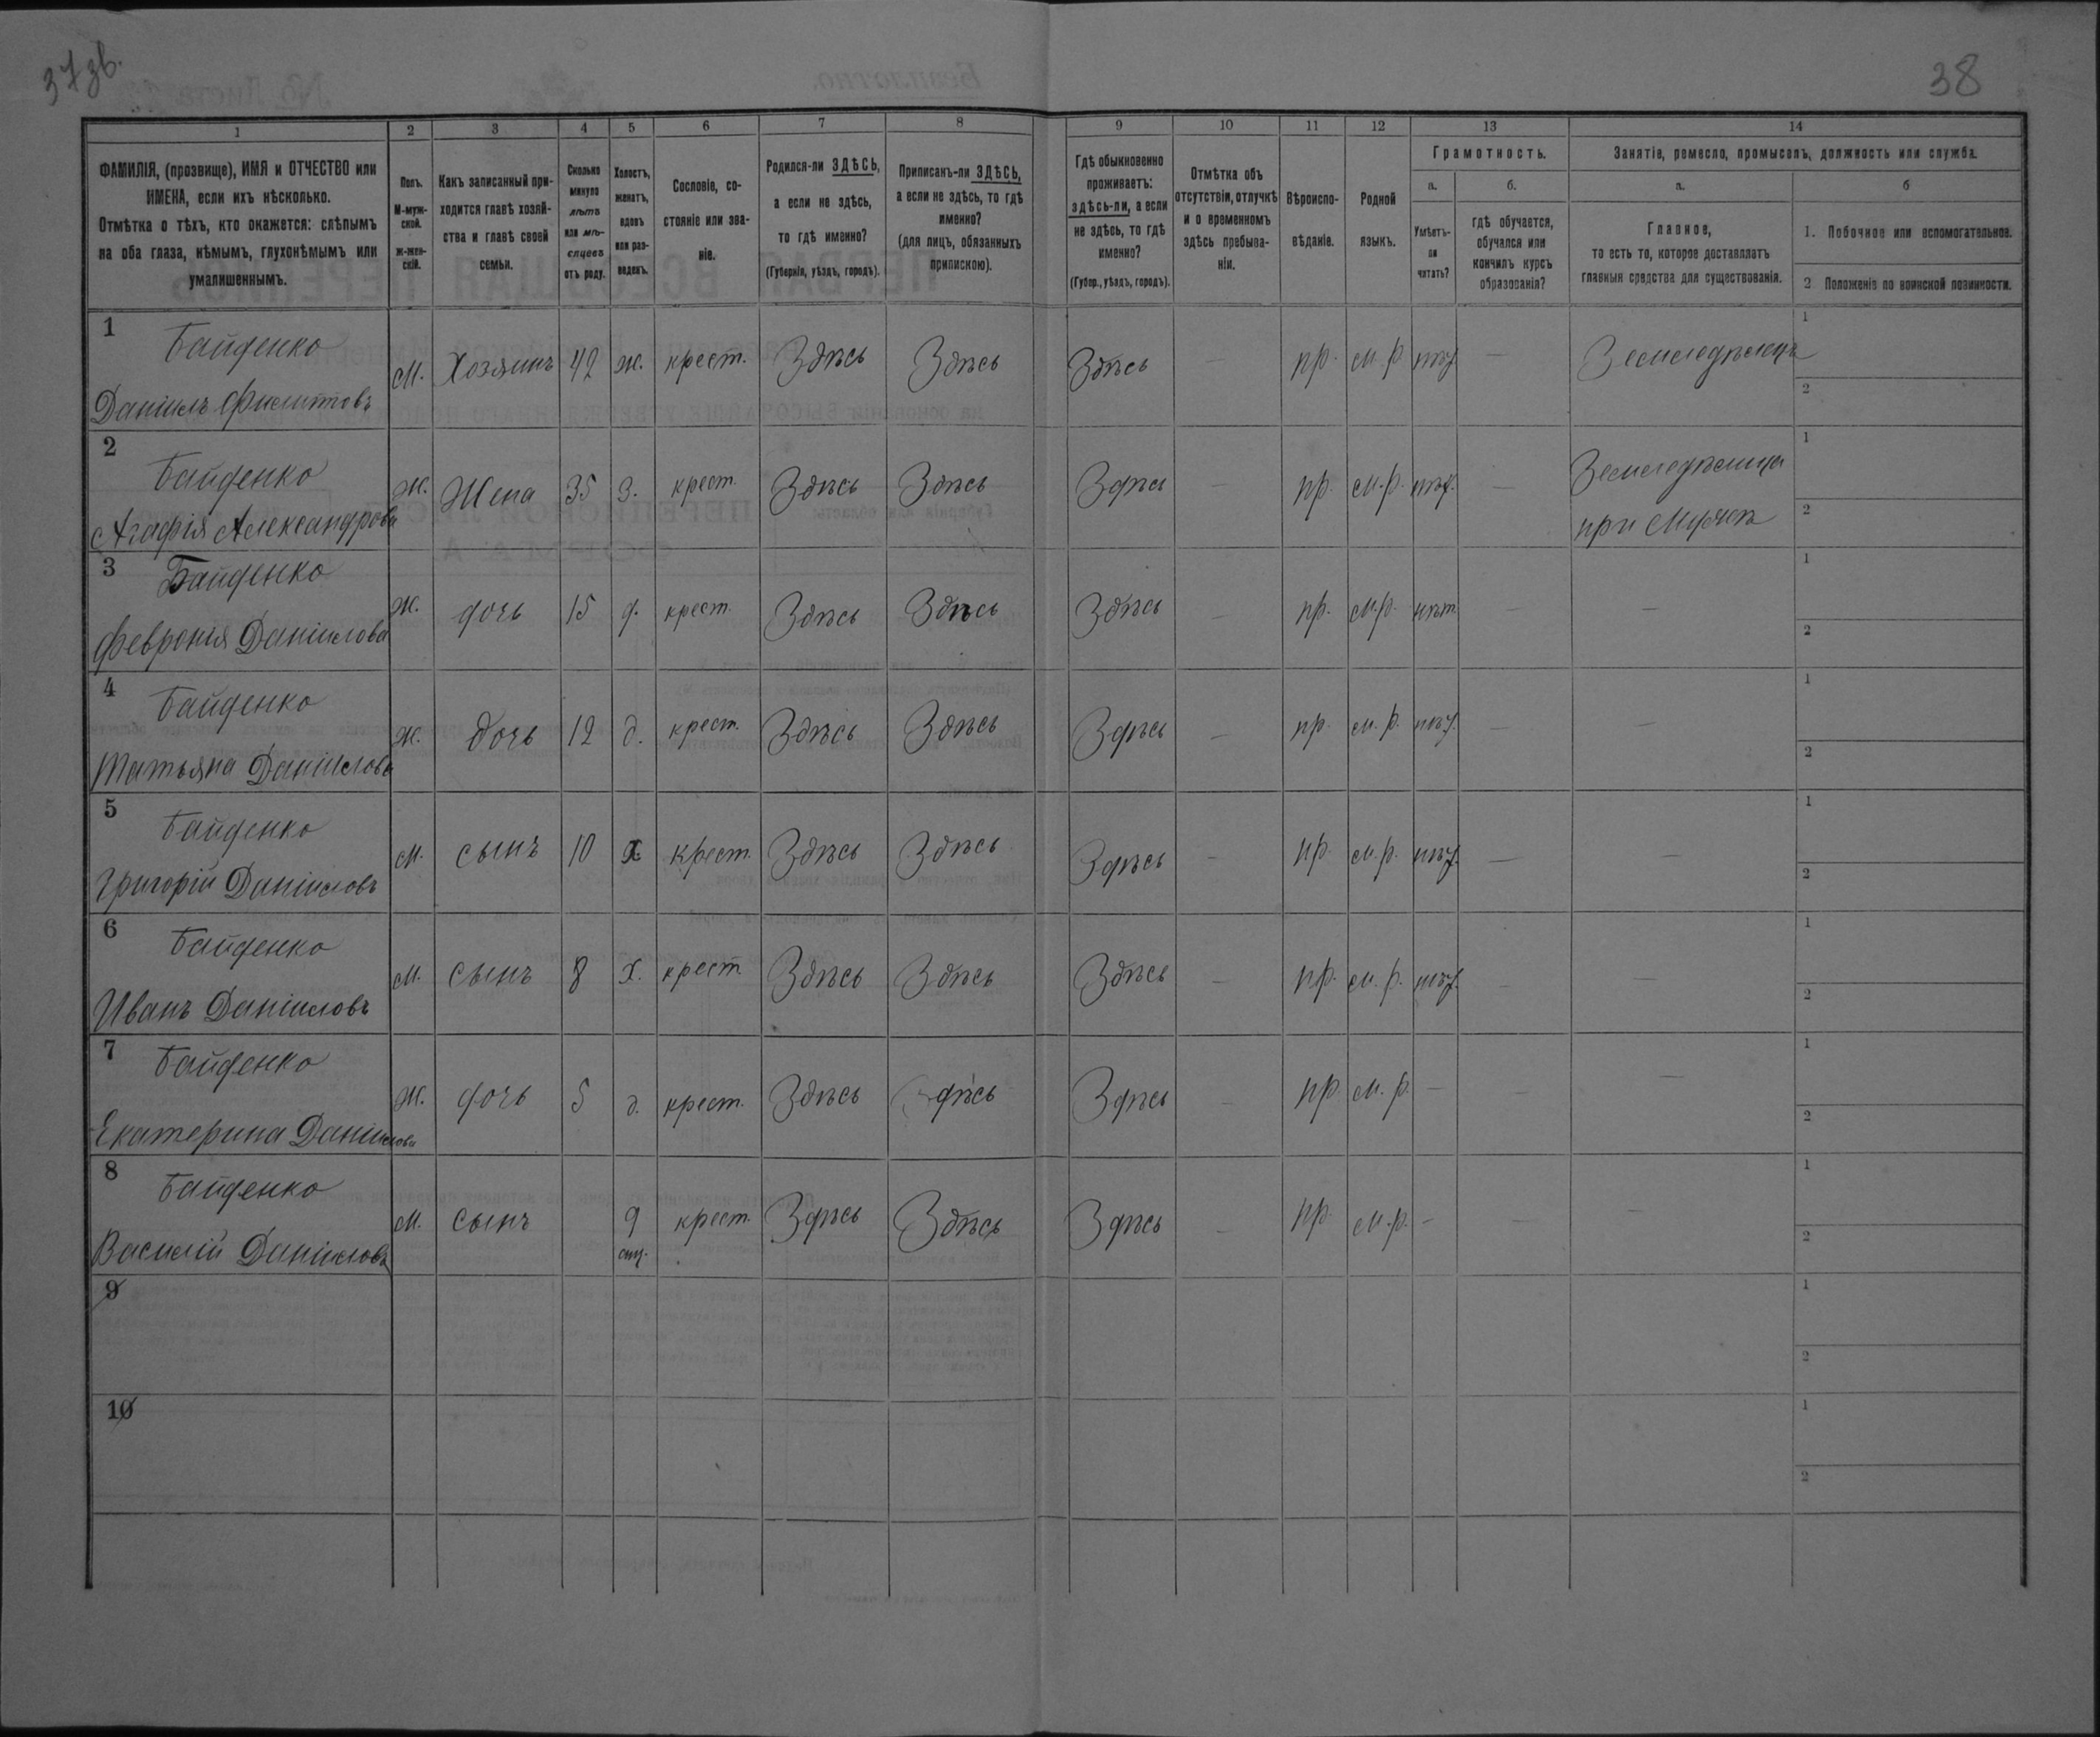 37 зв.
38
1 2 3 4 5 6 7 8 9 10 11 12 13 14
ФАМИЛІЯ, (прозвище), ИМЯ и ОТЧЕСТВО или ИМЕНА, если ихъ нѣсколько.
Отмѣтка о тѣхъ, кто окажется: слѣпымъ на оба глаза, нѣмымъ, глухонѣмымъ или умалишеннымъ.
Полъ. М-мужской. Ж-женскій.
Какъ записанный приходится главѣ хозяйства и главѣ своей семьи.
Сколько минуло лѣтъ или мѣсяцевъ отъ роду.
Холостъ, женатъ, вдовъ или разведенъ.
Сословіе, состояніе или званіе.
Родился-ли ЗДѢСЬ, а если не здѣсь, то гдѣ именно? (Губернія, уѣздъ, городъ).
Приписанъ-ли ЗДѢСЬ, а если не здѣсь, то гдѣ именно? (для лицъ, обязанныхъ припискою).
Гдѣ обыкновенно проживаетъ: здѣсь-ли, а если не здѣсь, то гдѣ именно? (Губер., уѣздъ, городъ).
Отмѣтка объ отсутствіи, отлучкѣ и о временномъ здѣсь пребываніи.
Вѣроисповѣданіе.
Родной языкъ.
Грамотность.
а. Умѣетъ-ли читать?
б. гдѣ обучается, обучался или кончилъ курсъ образованія?
Занятіе, ремесло, промыселъ, должность или служба.
а. Главное, то есть то, которое доставляетъ главныя средства для существованія.
б
1. Побочное или вспомогательное.
2 Положеніе по воинской повинности.
1 Байденко Даніилъ Филиповъ М. Хозяинъ 42 ж. крест. Здѣсь Здѣсь Здѣсь — пр. м. р нѣт — Земледѣлецъ 1 2
2 Байденко Агафія Александрова Ж. Жена 35 З. крест. Здѣсь Здѣсь Здѣсь — пр. м. р. нѣт. — Земледѣлица при Мужѣ 1 2
3 Байденко Февронія Даніилова Ж. дочь 15 д. крест. Здѣсь Здѣсь Здѣсь — пр. м.р. нѣт — — 1 2
4 Байденко Татьяна Даніилова Ж. дочь 12 д. крест. Здѣсь Здѣсь Здѣсь — пр. м. р. нѣт. — — 1 2
5 Байденко Григорій Даніиловъ М. сынъ 10 х. крест. Здѣсь Здѣсь Здѣсь — пр. м. р. нѣт. — — 1 2
6 Байденко Иванъ Даніиловъ М. сынъ 8 х. крест Здѣсь Здѣсь Здѣсь — пр. м. р. нѣт. — — 1 2
7 Байденко Екатерина Даніилова Ж. дочь 5 д. крест. Здѣсь Здѣсь Здѣсь — пр. м. р. — — 1 2
8 Байденко Василій Даніиловъ М. сынъ 9 крест. Здѣсь Здѣсь Здѣсь — пр. м. р. — — — 1 2
9 1 2
10 1 2